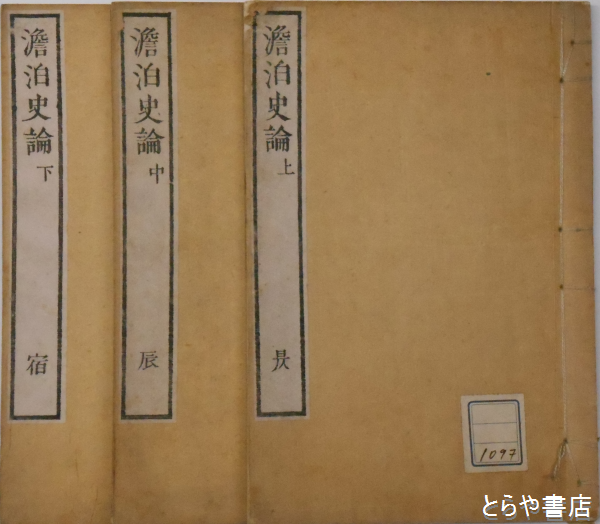 澹泊史論 上
昃
澹泊史論 中
辰
澹泊史論 下
宿
1097
とらや書店